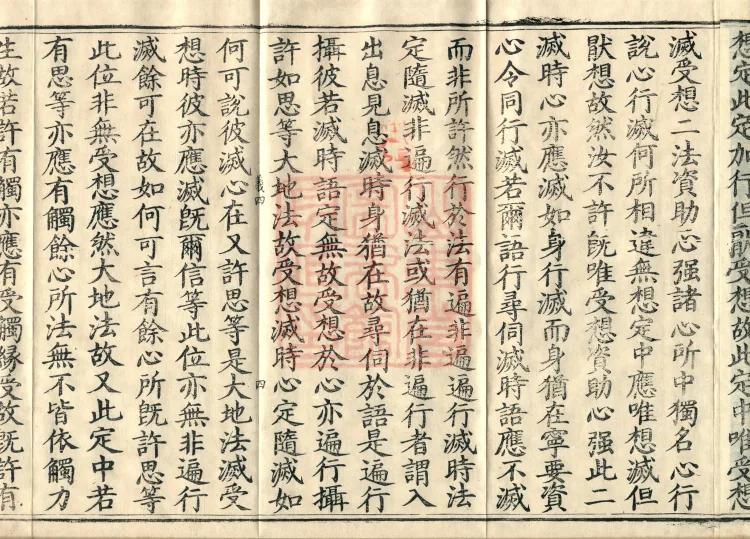 想定此定加行但厭受想故此定中唯受想
滅受想二法資助心强諸心所中獨名心行
說心行滅何所相違無想定中應唯想滅但
猒想故然汝不許旣唯受想資助心强此二
滅時心亦應滅如身行滅而身猶在寧要資
心令同行滅若爾語行尋伺滅時語應不滅
而非所許然行於法有遍非遍遍行滅時法
定隨滅非遍行滅法或猶在非遍行者謂入
出息見息滅時身猶在故尋伺於語是遍行
攝彼若滅時語定無故受想於心亦遍行攝
許如思等大地法故受想滅時心定隨滅如
義四
四
何可說彼滅心在又許思等是大地法滅受
想時彼亦應滅旣爾信等此位亦無非遍行
滅餘可在故如何可言有餘心所旣許思等
此位非無受想應然大地法故又此定中若
有思等亦應有觸餘心所法無不皆依觸力
生故若許有觸亦應有受觸緣受故旣許有